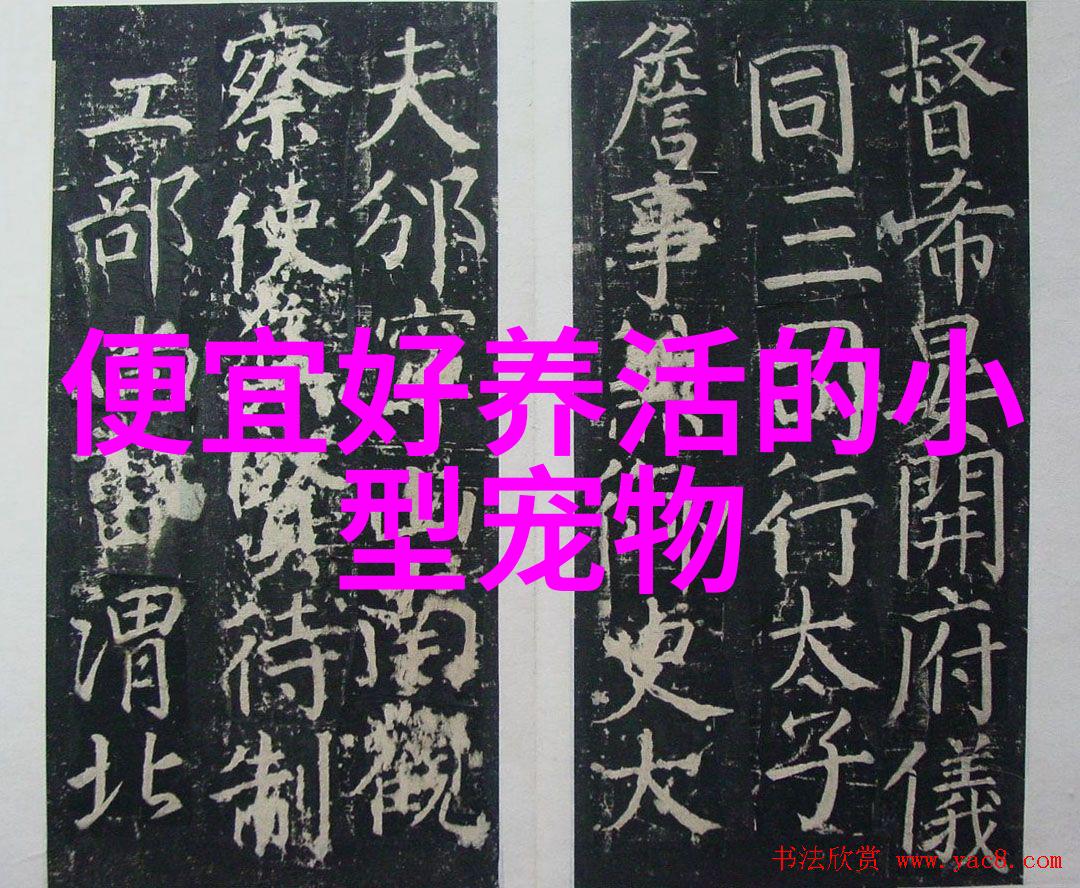 督希開府儀
同三司行太子
詹事史大
夫邠寧觀
察使賢待制
工部尚書渭北
便宜好养活的小
型宠物
书法欣赏 www.yac8.com